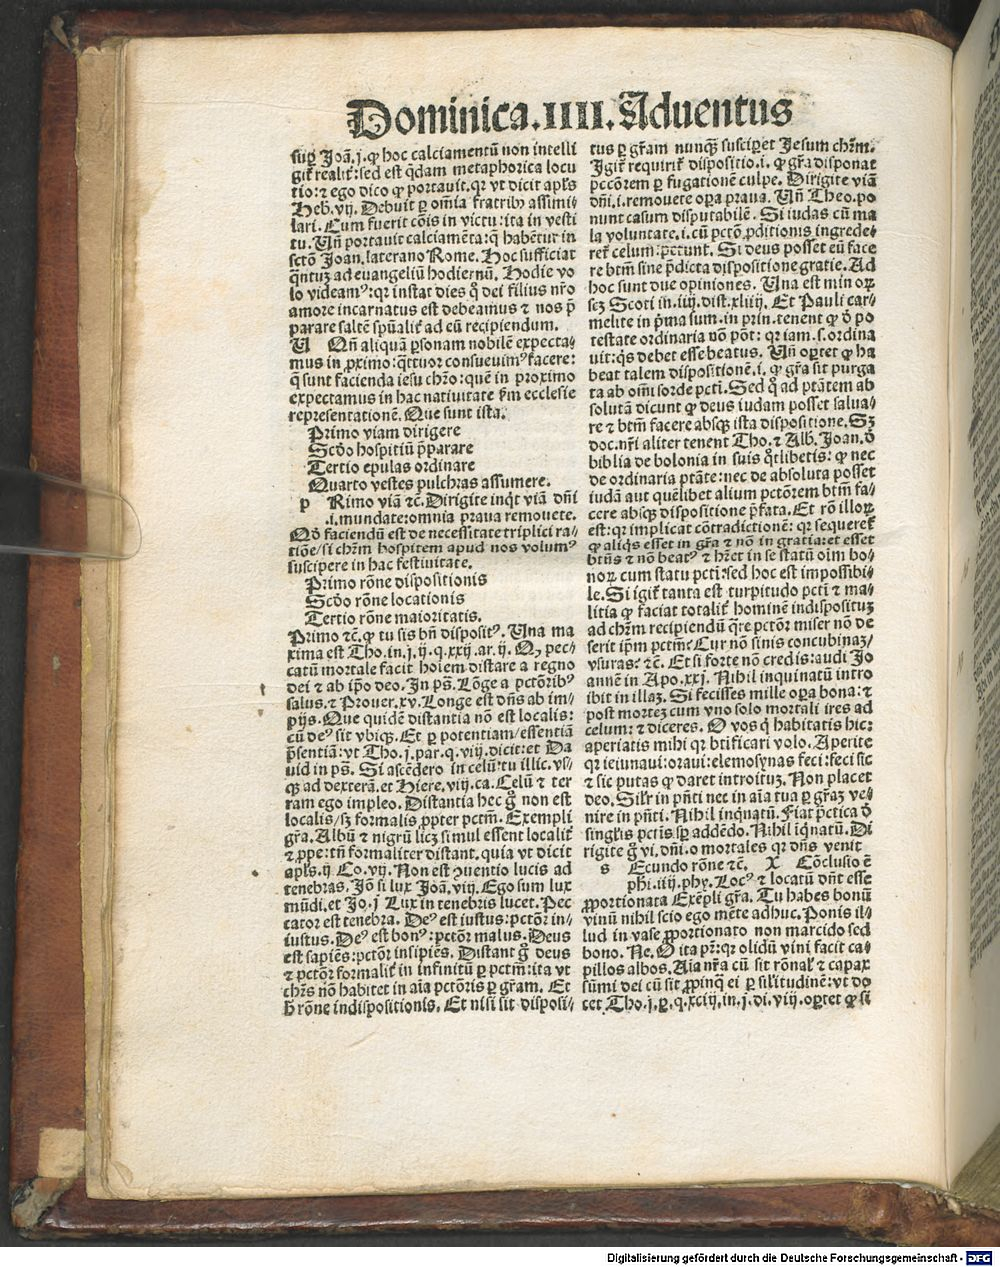 Dominica.IIII.Aduentus
sup̱ Joā.j.ꝙ hoc calciamentū non intelli
git᷑ realit᷑:sed est q̄dam metaphorica locu
tio:⁊ ego dico ꝙ portauit.qꝛ vt dicit apl̄s
Heb.vij. Debuit ꝑ om̄ia fratrib⁹ assimi⸗
lari. Cum fuerit cōis in victu:ita in vesti
tu. Un̄ portauit calciamēta:q̄ habēt᷑ur in
sctō Joan.laterano Rome. Hoc sufficiat
q̄ntuꝫ ad euangeliū hodiernū. Hodie vo
lo videam⁹:qꝛ instat dies q̄ dei filius nr̄o
amore incarnatus est debeamus ⁊ nos p̄
parare saltē spūalit᷑ ad eū recipiendum.
U Qn̄ aliquā ꝑsonam nobilē expecta⸗
mus in ꝓximo:q̄ttuor consueuim⁹ facere:
q̄ sunt facienda iesu chr̄o:quē in proximo
expectamus in hac natiuitate ẜm ecclesie
representationē. Que sunt ista.
Primo viam dirigere
Scd̄o hospitiū p̄parare
Tertio epulas ordinare
Quarto vestes pulchras assumere.
p Rimo viā ⁊c. Dirigite inq̇t viā dn̄i
.i.mundate:omnia praua remouete.
Qd̄ faciendū est de necessitate triplici ra⸗
tiōe/si chr̄m hospitem apud nos volum⁹
suscipere in hac festiuitate.
Primo rōne dispositionis
Scd̄o rōne locationis
Tertio rōne maioritatis.
Primo ⁊c. ꝙ tu sis bn̄ disposit⁹. Una ma
xima est Tho.in.j.ij.q.xxij.ar.ij. Q, pec⸗
catū mortale facit hoīem distare a regno
dei ⁊ ab ip̄o deo. In ps̄. Lōge a pctōrib⁹
salus.⁊ Prouer.xv. Longe est dn̄s ab im⸗
pijs. Que quidē distantia nō est localis:
cū de⁹ sit vbiqꝫ. Et ꝑ potentiam/essentiā
p̄sentiā:vt Tho.j.par.q.viij.dicit:et Da
uid in ps̄. Si ascēdero in celū:tu illic.vs⸗
qꝫ ad dexterā.et Hiere.viij.ca. Celū ⁊ ter
ram ego impleo. Distantia hec g̊ non est
localis/sꝫ formalis ꝓpter pctm̄. Exempli
gr̄a. Albū ⁊ nigrū licꝫ simul essent localit᷑
⁊ ꝓpe:tn̄ formaliter distant. quia vt dicit
apl̄s.ij Co.vij. Non est ꝯuentio lucis ad
tenebras. Jō si lux Joā.viij. Ego sum lux
mūdi.et Jo.j Lux in tenebris lucet. Pec
cator est tenebra. De⁹ est iustus:pctōr in⸗
iustus. De⁹ est bon⁹:pctōr malus. Deus
est sapiēs:pctōr insipiēs. Distant g̊ deus
⁊ pctōr formalit᷑ in infinitū ꝑ pctm̄:ita vt
chr̄s nō habitet in aīa pctōris ꝑ gr̄am. Et
ħ rōne indispositionis. Et nisi sit disposi⸗
tus ꝑ gr̄am nunqꝫ suscipiet Jesum chr̄m.
Igit᷑ requirit᷑ dispositio.i. ꝙ gr̄a disponat
pccōrem ꝑ fugationē culpe. Dirigite viā
dn̄i.i.remouete oꝑa praua. Un̄ Theo.po
nunt casum disputabilē. Si iudas cū ma
la voluntate.i.cū pctō ꝑditionis ingrede⸗
ret᷑ celum:petunt. Si deus posset eū face
re btm̄ sine p̄dicta dispositione gratie. Ad
hoc sunt due opiniones. Una est minoꝝ
scꝫ Scoti in.iiij.dist.xliiij. Et Pauli car⸗
melite in p̄ma sum.in prin.tenent ꝙ d̓ po
testate ordinaria nō pōt: qꝛ iam.s.ordina
uit:q̄s debet esse beatus. Un̄ oꝑtet ꝙ ha
beat talem dispositionē.i. ꝙ gr̄a sit purga
ta ab om̄i sorde pcti. Sed q̊ ad ptātem ab
solutā dicunt ꝙ deus iudam posset salua⸗
re ⁊ btm̄ facere absqꝫ ista dispositione. Sꝫ
doc.nr̄i aliter tenent Tho.⁊ Alb̄. Joan.d̓
biblia de bolonia in suis q̊tlibetis: ꝙ nec
de ordinaria ptāte:nec de absoluta posset
iudā aut quēlibet alium pctōrem btm̄ fa⸗
cere absqꝫ dispositione p̄fata. Et rō illoꝝ
est:qꝛ implicat cōtradictionē: qꝛ sequeret᷑
ꝙ aliq̇s esset in gr̄a ⁊ nō in gratia:et esset
btūs ⁊ nō beat⁹ ⁊ hr̄et in se statū oīm bo⸗
noꝝ cum statu pcti:sed hoc est impossibi⸗
le. Si igit᷑ tanta est turpitudo pcti ⁊ ma⸗
litia ꝙ faciat totalit᷑ hominē indispositūꝫ
ad chr̄m recipiendū q̄re pctōr miser nō de
serit ip̄m pctm̄:Cur nō sinis concubinaꝫ/
vsuras: ⁊c. Et si forte nōn credis:audi Jo
annē in Apo.xxj. Nihil inquinatū intro
ibit in illaꝫ. Si fecisses mille oꝑa bona:⁊
post morteꝫ cum vno solo mortali ires ad
celum:⁊ diceres. O vos q̄ habitatis hic:
aperiatis mihi qꝛ btificari volo. Aperite
qꝛ ieiunaui:oraui:elemosynas feci:feci sic
⁊ sic putas ꝙ daret introituꝫ. Non placet
deo. Silr̄ in pn̄ti nec in aīa tua ꝑ gr̄aꝫ ve⸗
nire in pn̄ti. Nihil inq̇natū. Fiat p̄ctica d̓
singl̓is pctis sꝑ addēdo. Nihil iq̇natū. Di
rigite g̊ vi.dn̄i.o mortales qꝛ dn̄s venit
s Ecundo rōne ⁊c. X Cōclusio ē
phi.iiij.phy. Loc⁹ ⁊ locatū dn̄t esse
ꝓportionata Exēpli gr̄a. Tu habes bonū
vinū nihil scio ego mēte adhuc. Ponis il⸗
lud in vase ꝓportionato non marcido sed
bono. Ne. O ita pr̄:qꝛ olidū vini facit ca⸗
pillos albos. Aīa nr̄a cū sit rōnal᷑ ⁊ capax
sūmi dei cū sit ꝓpinq̄ ei ꝑ sil̓itudinē:vt do
cet Tho.j.ꝑ.q.xciij.in.j.di.viij.oꝑtet ꝙ si
Digitalisierung gefördert durch die Deutsche Forschungsgemeinschaft - DFG